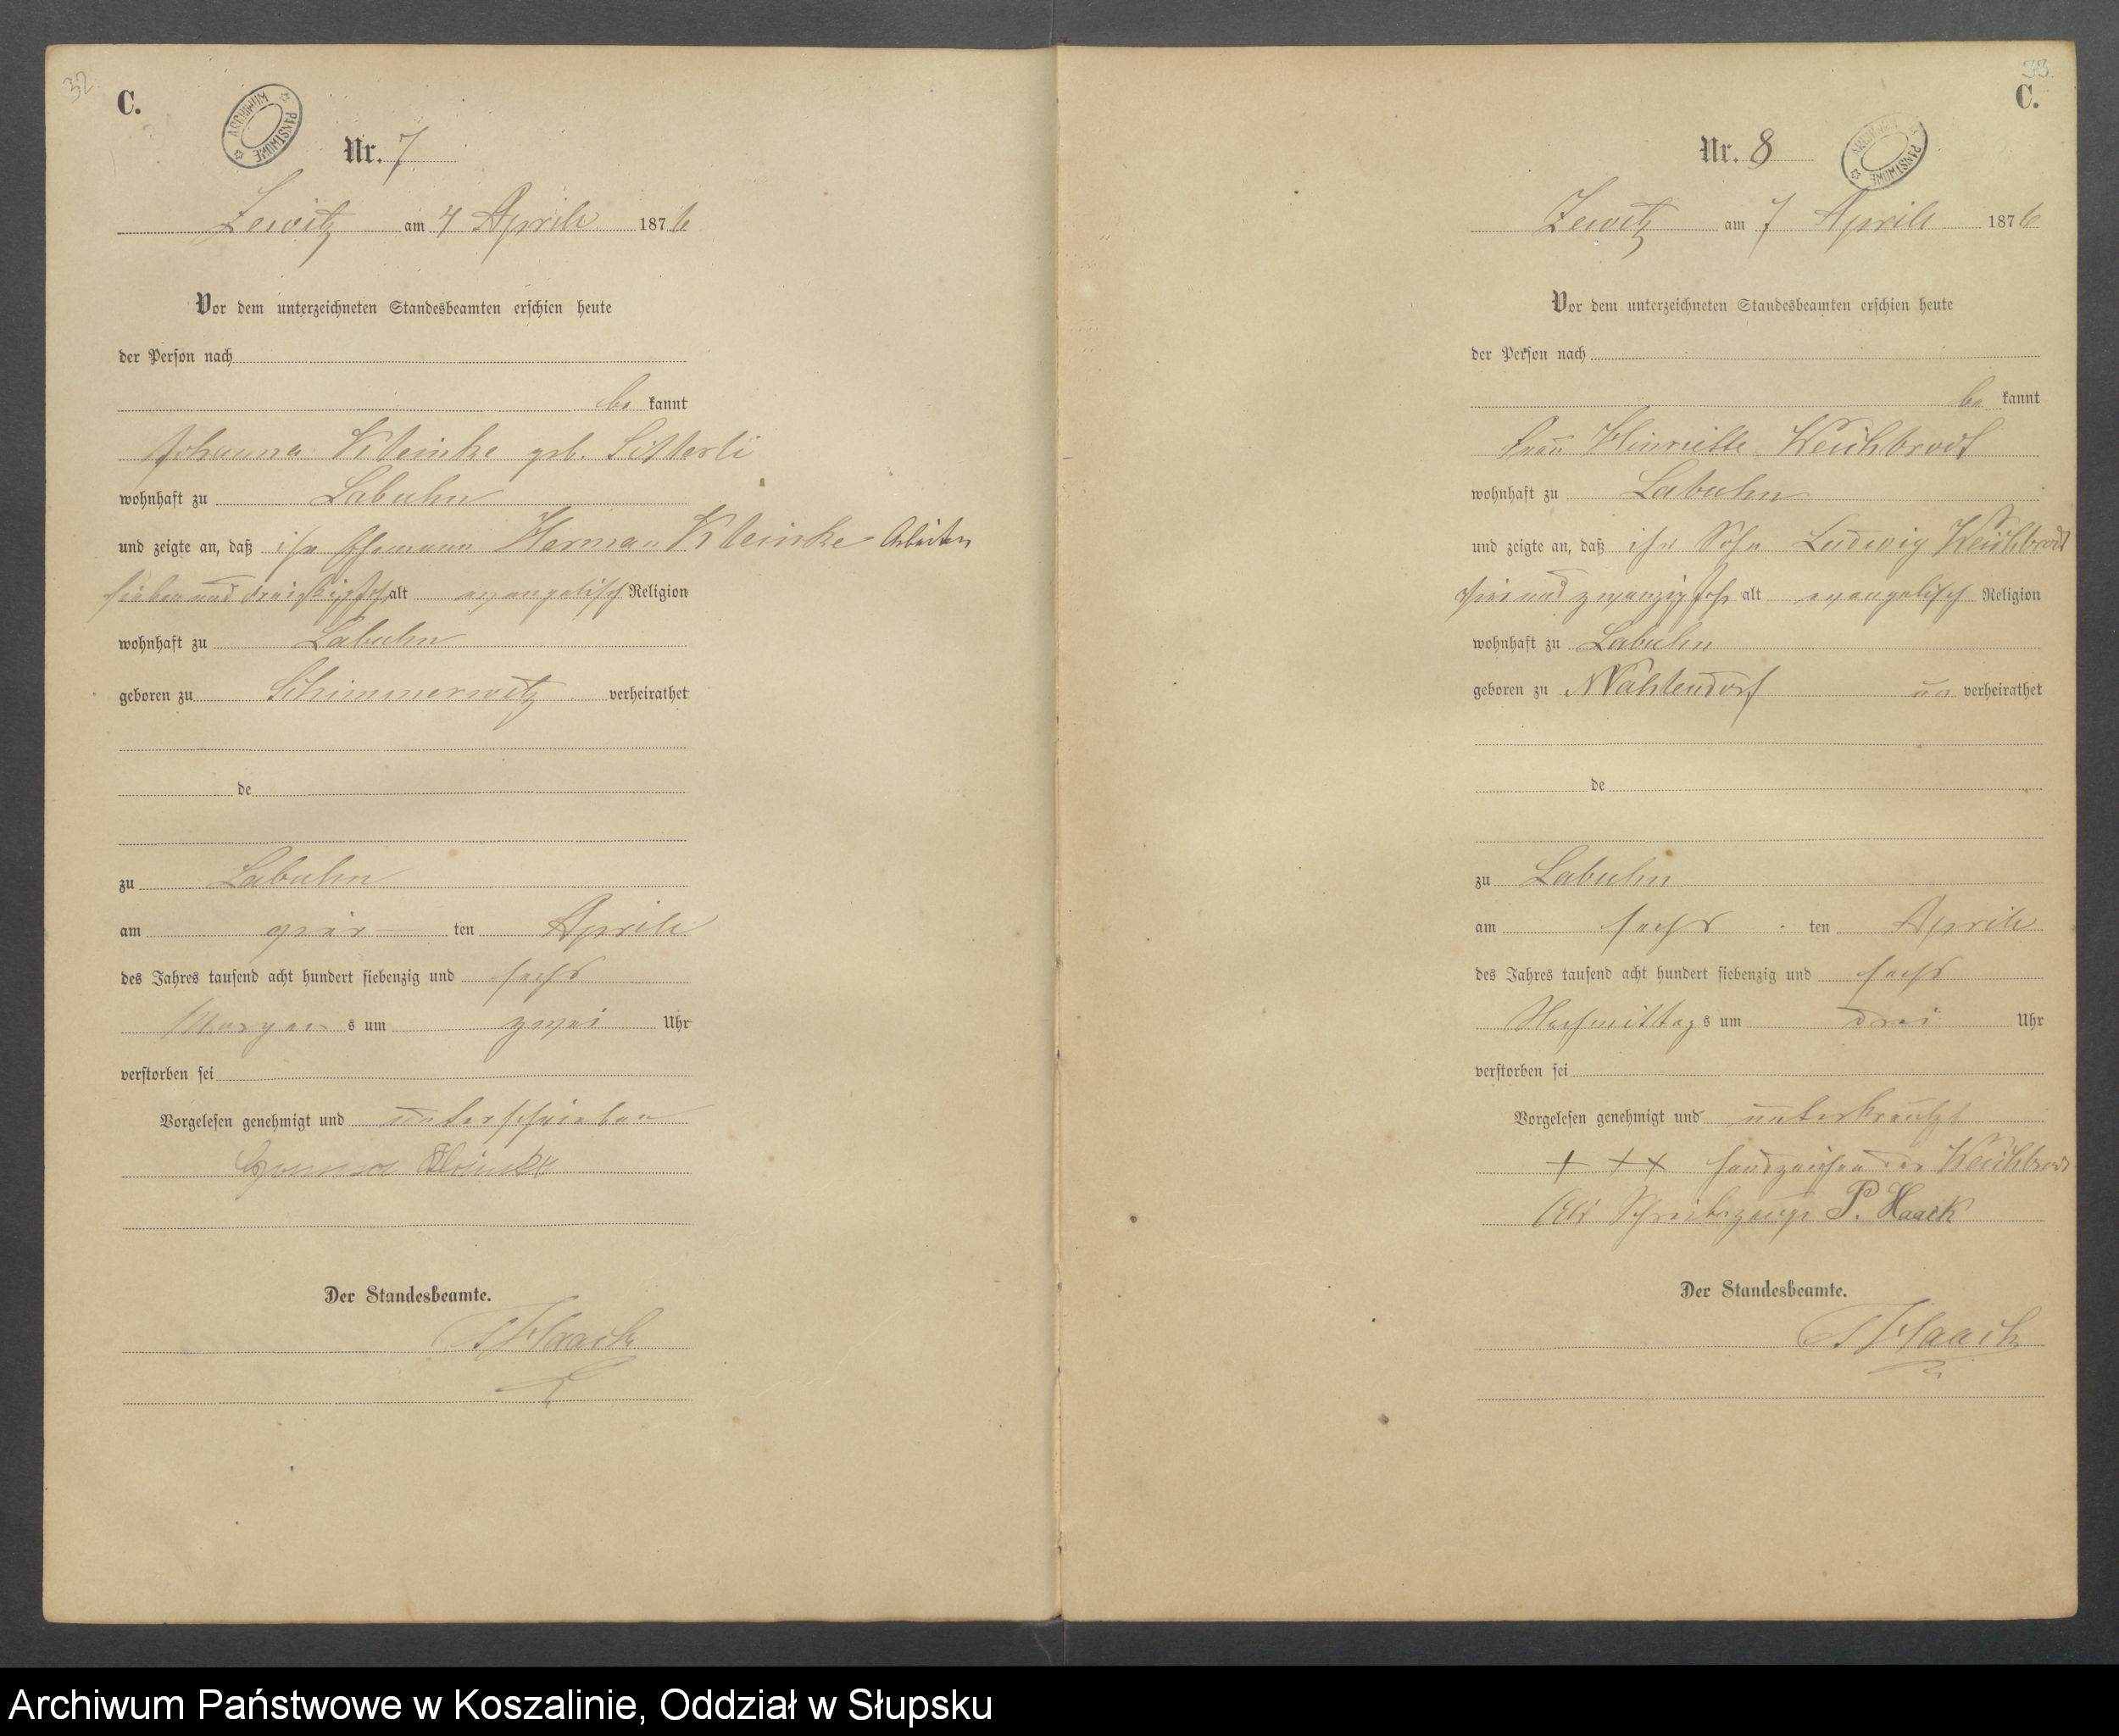 32
C.
ARCHIWUM PAŃSTWOWE
Nr. 7
Zewitz am 4 Aprile 1876
Vor dem unterzeichneten Standesbeamten erschien heute
der Person nach
be kannt
Johanna Kleinke geb.
wohnhaft zu Labuhn
und zeigte an, daß ihr Ehemann Herman Kleinke Arbeiter
sieben und dreißig Jahr alt evangelisch Religion
wohnhaft zu Labuhn
geboren zu Schimmerwitz verheirathet
de
zu Labuhn
am vier ten Aprile
des Jahres tausend acht hundert siebenzig und sechs
Morgen s um zwei Uhr
verstorben sei
Vorgelesen genehmigt und unterschrieben
Kleinke
Der Standesbeamte.
Haack
33
C.
ARCHIWUM PAŃSTWOWE
Nr. 8
Zewitz am 7 Aprile 1876
Vor dem unterzeichneten Standesbeamten erschien heute
der Person nach
be kannt
Frau Hinriette Weichbrodt
wohnhaft zu Labuhn
und zeigte an, daß ihr Sohn Ludwig Weichbrodt
und zwanzig Jahr alt evangelisch Religion
wohnhaft zu Labuhn
geboren zu Wahlendorf un verheirathet
de
zu Labuhn
am sechs ten Aprile
des Jahres tausend acht hundert siebenzig und sechs
Nachmittag s um drei Uhr
verstorben sei
Vorgelesen genehmigt und unterkreutzt
+ + + Handzeichen der Weichbrodt
Als Schreibzeuge P. Haack
Der Standesbeamte.
Haack
Archiwum Państwowe w Koszalinie, Oddział w Słupsku